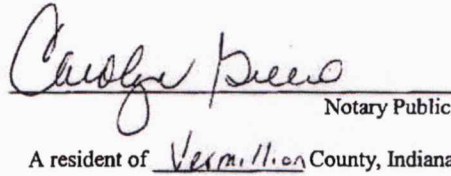 Carolyn
Notary Public
A resident of Vermillion County, Indiana